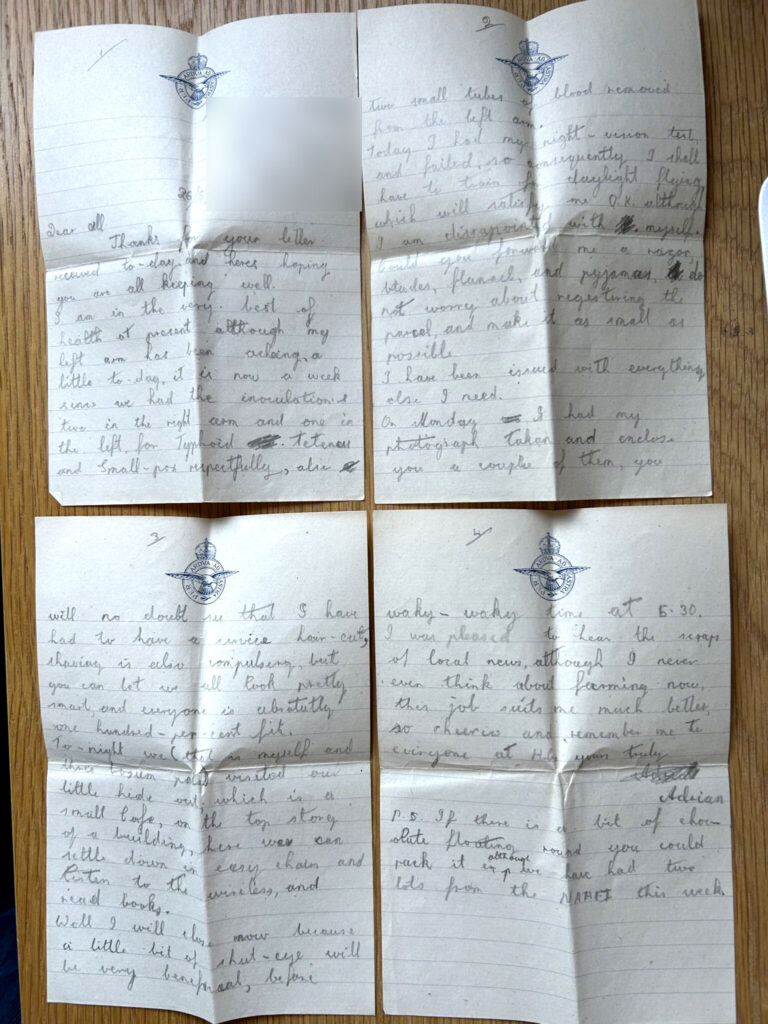 1
PER ARDVA AD ASTRA
26/5
Dear all
Thanks for your letter
received to-day and heres hoping
you are all keeping well.
I am in the very best of
health at present although my
left arm has been acheing, a
little to-day, it is now a week
since we had the inoculation's
two in the right arm and one in
the left, for Typhoid Tetenus
and Small-pox respectfully, also
2
PER ARDVA AD ASTRA
two small tubes of blood removed
from the left arm.
Today I had my night-vision test,
and failed, so consequently I shall
have to train for daylight flying,
which will satisfy me O.K. although
I am dissapointed with myself.
Could you forward me a razor,
blades, flannel, and pyjamas, do
not worry about regestering the
parcel, and make it as small as
possible
I have been issued with everything
else I need.
On Monday I had my
photograph taken and enclose
you a couple of them, you
3
PER ARDVA AD ASTRA
will no doubt see that I have
had to have a service hair-cut,
shaving is also compulsing, but
you can bet we all look pretty
smart, and everyone is absolutly
one hundred-per-cent fit.
To-night we (that is myself and
three pals) visited our
little hide out, which is a
small Cafe, on the top story
of a building, here we can
settle down in easy chairs and
listen to the wireless, and
read books.
Well I will close now because
a little bit of shut-eye will
be very benefical, before
4
PER ARDVA AD ASTRA
waky-waky time at 5.30.
I was pleased to hear the scraps
of local news, although I never
even think about farming now,
this job suits me much better,
so cheerio and remember me to
everyone at yours truly
Adrian
P.S. If there is a bit of choc-
olate floating round you could
pack it up although we have had two
lots from the NAAFI this week.